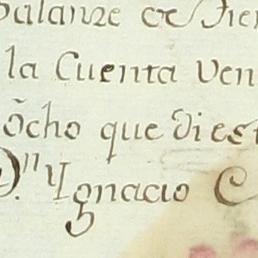 balanze de Tier
la Cuenta Ven
õcho que di est
Dn. Ygnacio C